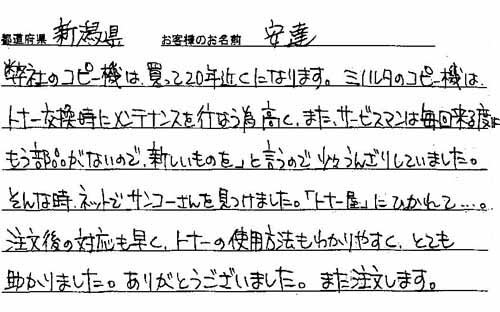 都道府県 新潟県 お客様のお名前 安達
弊社のコピー機は、買って20年近くになります。ミノルタのコピー機は、
トナー交換時にメンテナンスを行なう為高く、また、サービスマンは毎回来る度に
もう部品がないので、新しいものを」と言うので少々うんざりしていました。
そんな時、ネットでサンコーさんを見つけました。「トナー屋」にひかれて…。
注文後の対応も早く、トナーの使用方法もわかりやすく、とても
助かりました。ありがとうございました。また注文します。